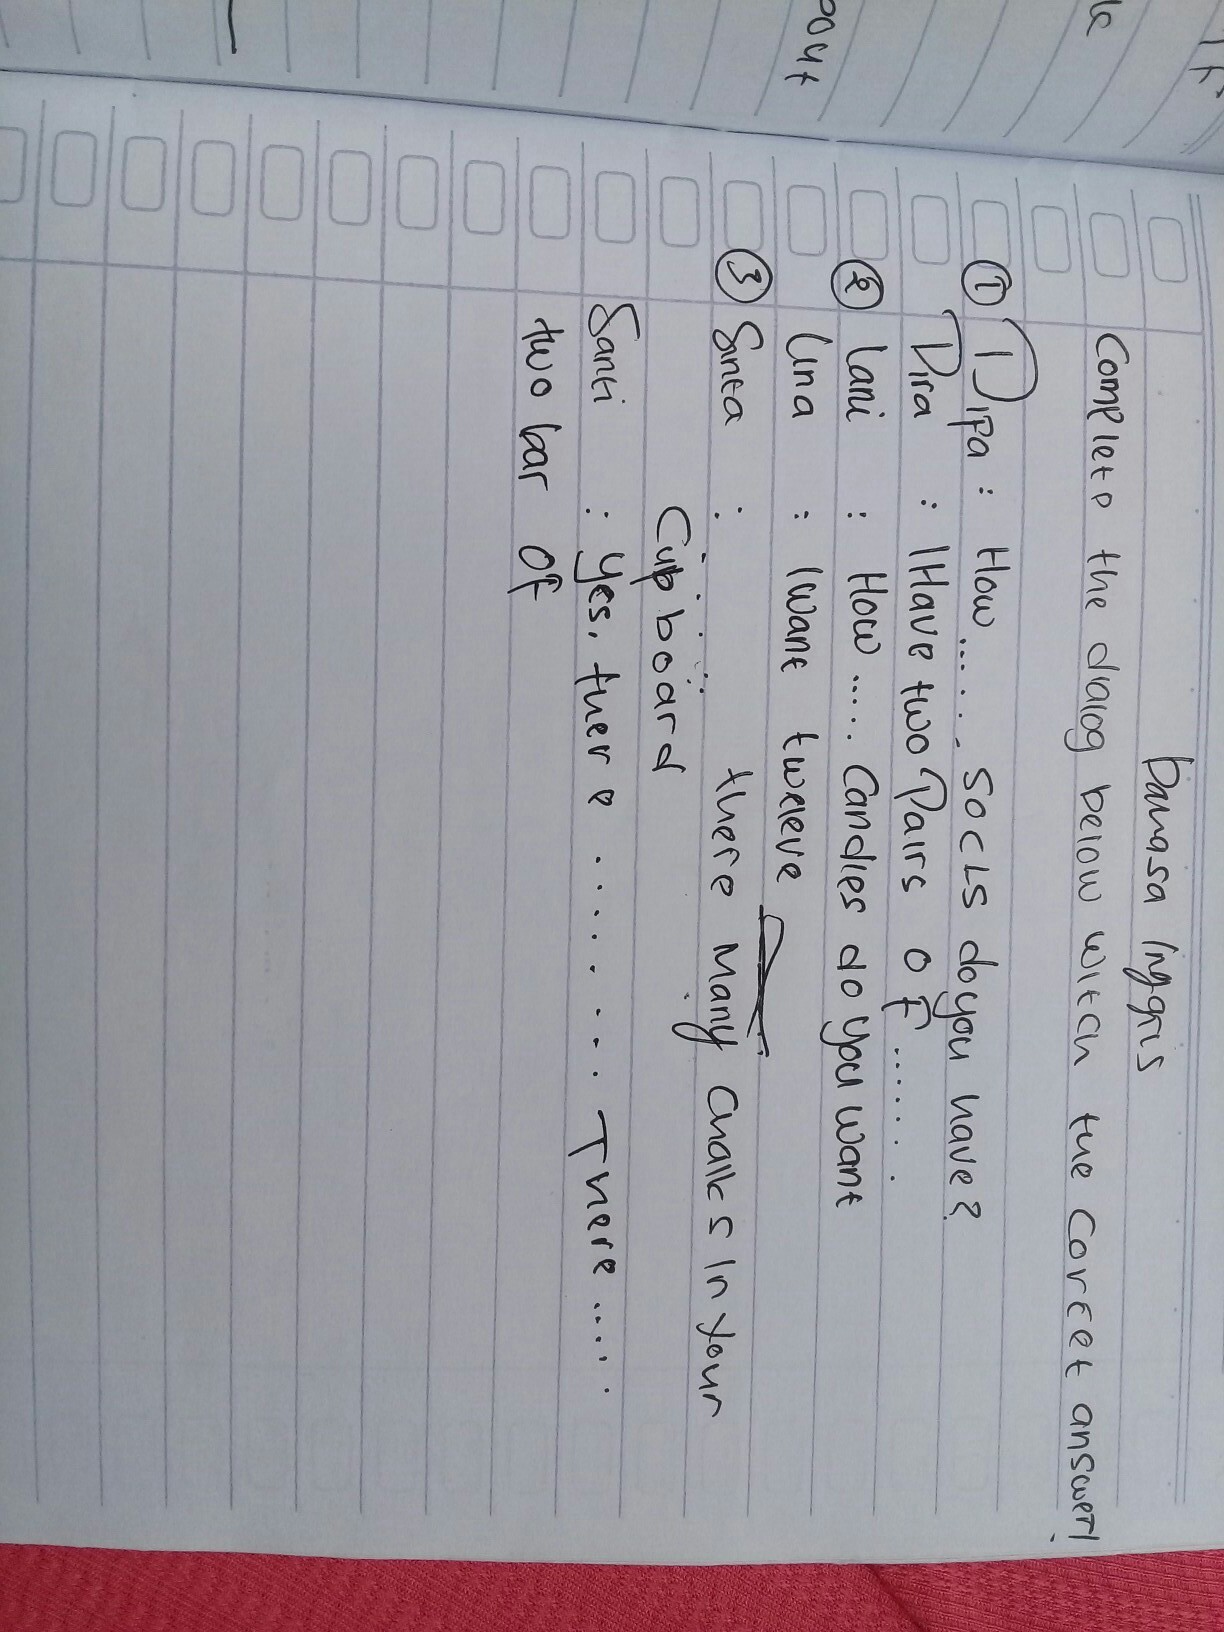 Bahasa Inggris
Complete the dialog below witch the correct answer!
① Dipa : How ...... socks do you have?
Dira : I Have two Pairs of .......
② Lani : How ..... Candies do you want
Lina : I want twelve
③ Sinta : there Many chalks in your
Cupboard
Santi : Yes, there ......... There .....
two bar of
pout